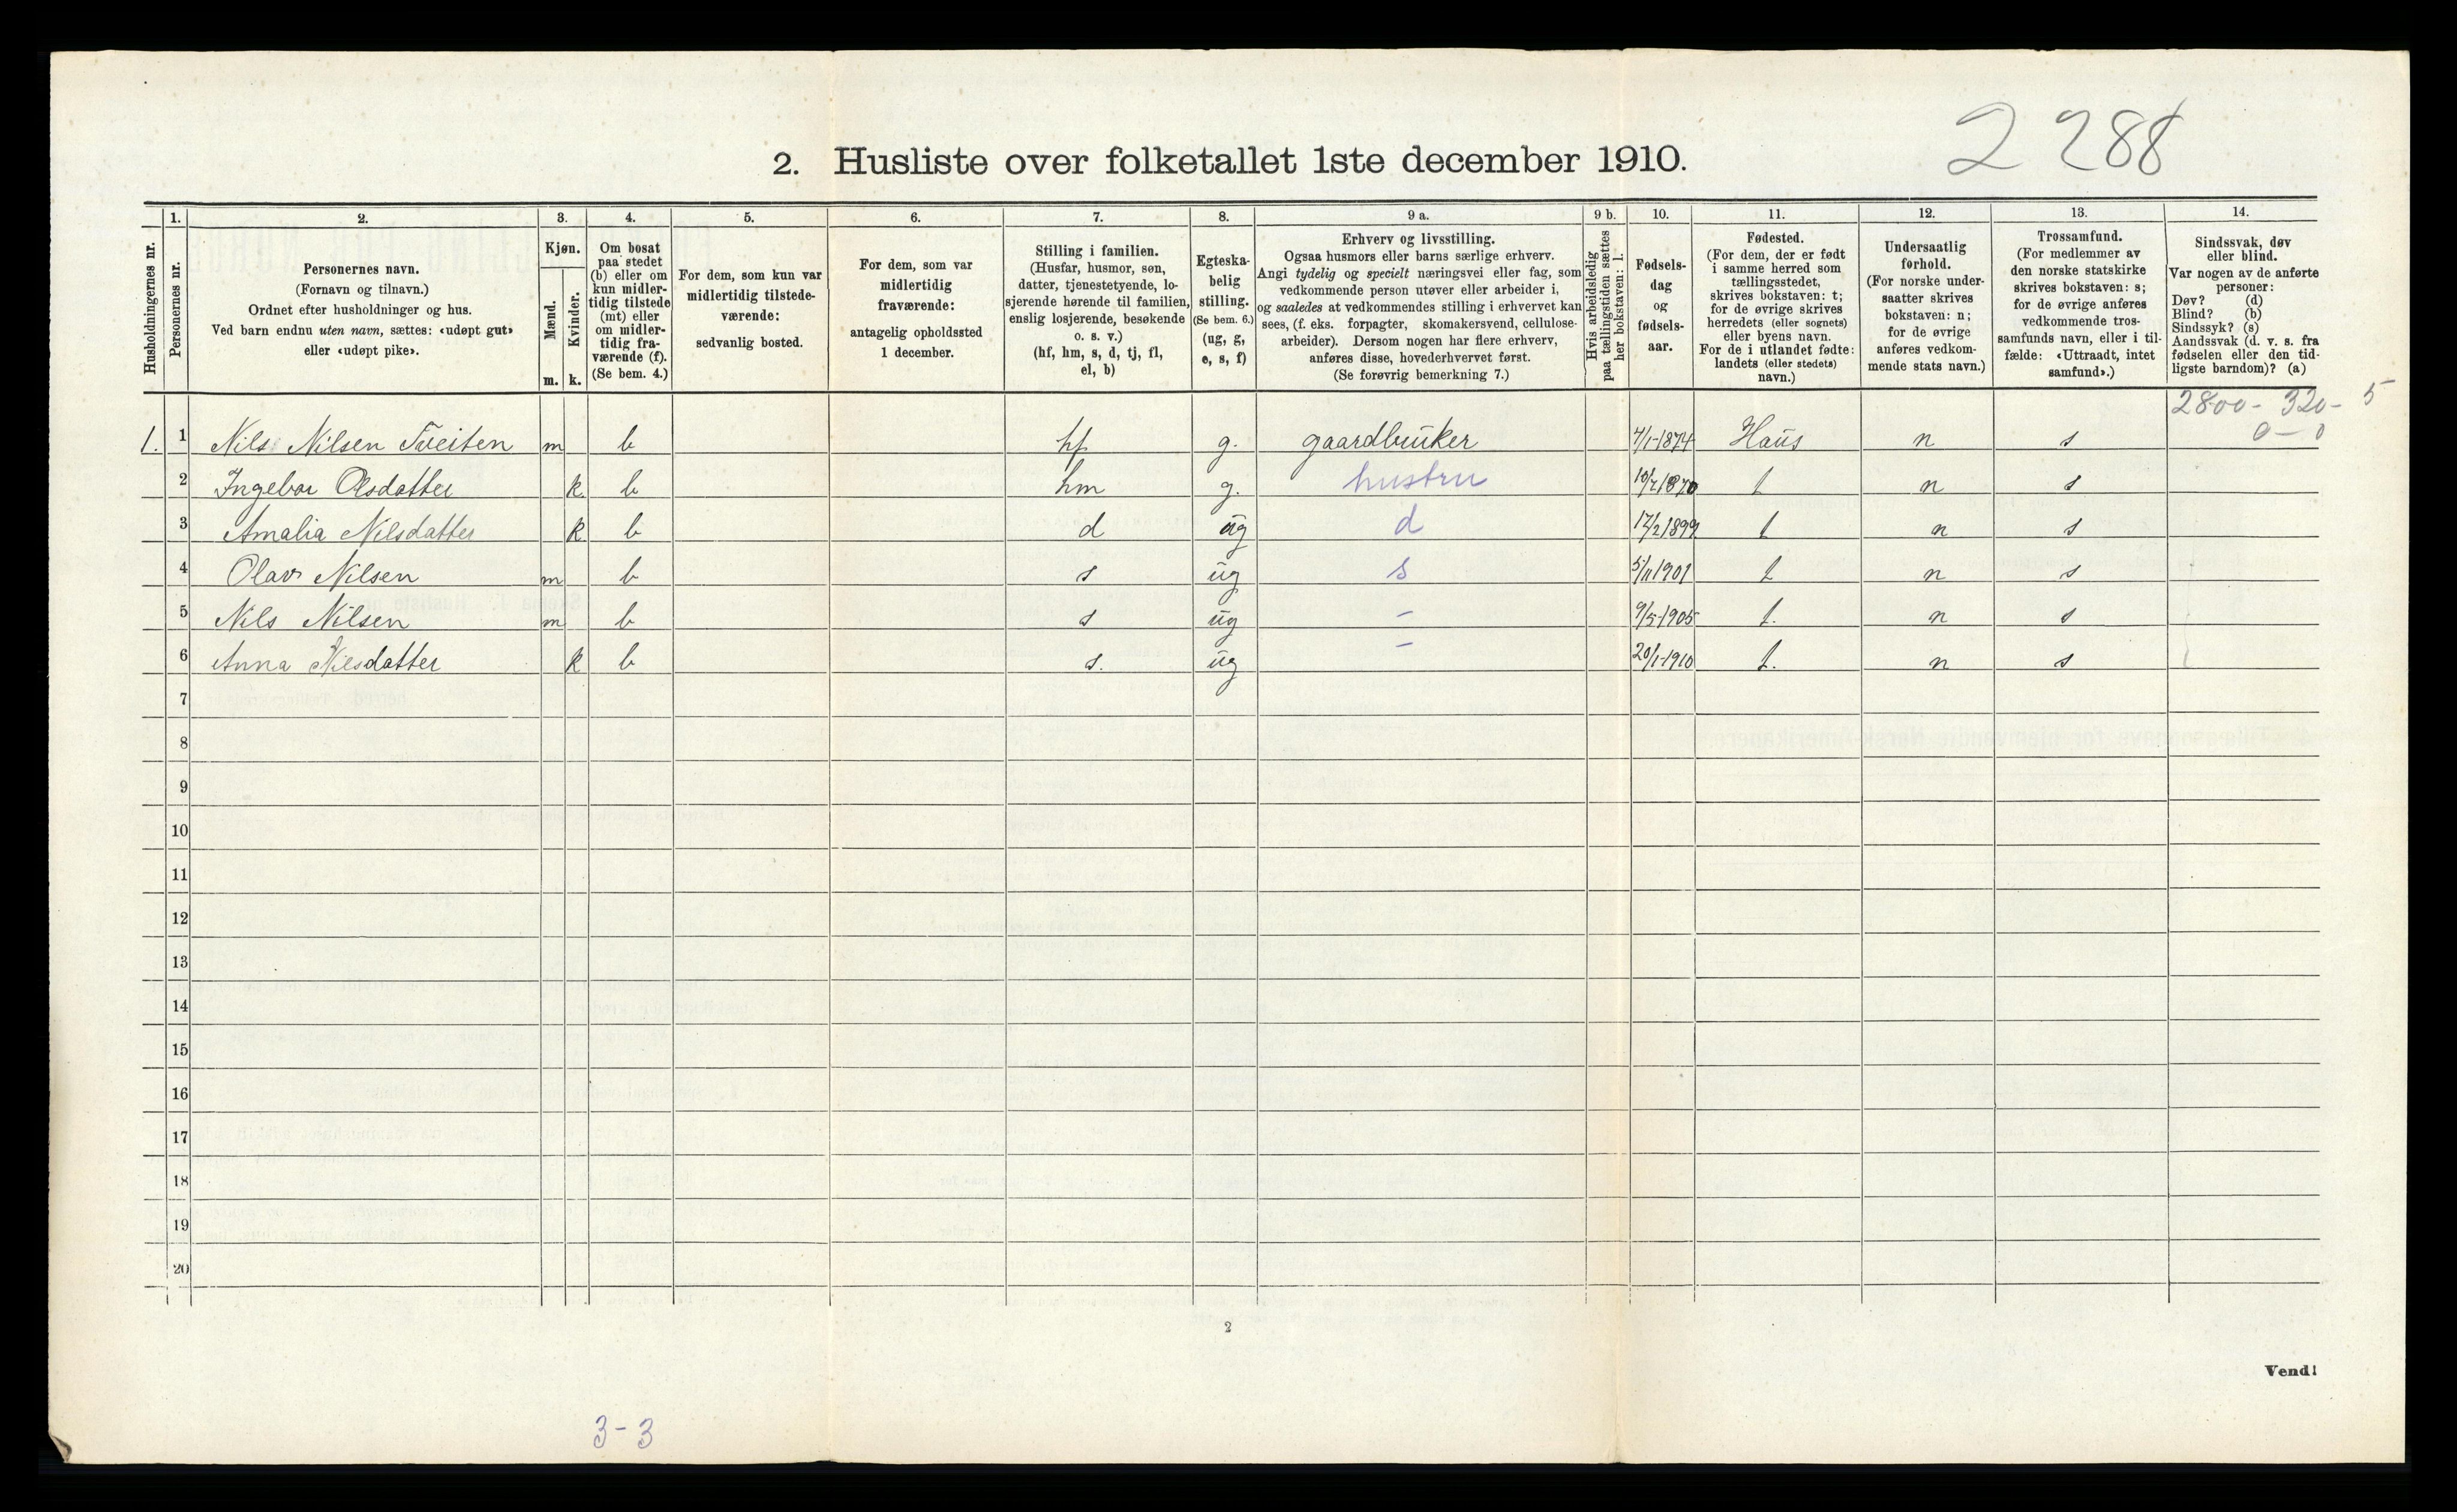 2 288
2. Husliste over folketallet 1ste december 1910.
Husholdningernes nr.
1.
Personernes nr.
2.
Personernes navn.
(Fornavn og tilnavn.)
Ordnet efter husholdninger og hus.
Ved barn endnu uten navn, sættes: «udøpt gut»
eller «udøpt pike».
3.
Kjøn.
Mænd.
Kvinder.
m. k.
4.
Om bosat
paa stedet
(b) eller om
kun midler-
tidig tilstede
(mt) eller
om midler-
tidig fra-
værende (f).
(Se bem. 4.)
5.
For dem, som kun var
midlertidig tilstede-
værende:
sedvanlig bosted.
6.
For dem, som var
midlertidig
fraværende:
antagelig opholdssted
1 december.
7.
Stilling i familien.
(Husfar, husmor, søn,
datter, tjenestetyende, lo-
sjerende hørende til familien,
enslig losjerende, besøkende
o. s. v.)
(hf, hm, s, d, tj, fl,
el, b)
8.
Egteska-
belig
stilling.
(Se bem. 6.)
(ug, g,
e, s, f)
9 a.
Erhverv og livsstilling.
Ogsaa husmors eller barns særlige erhverv.
Angi tydelig og specielt næringsvei eller fag, som
vedkommende person utøver eller arbeider i,
og saaledes at vedkommendes stilling i erhvervet kan
sees, (f. eks. forpagter, skomakersvend, cellulose-
arbeider). Dersom nogen har flere erhverv,
anføres disse, hovederhvervet først.
(Se forøvrig bemerkning 7.)
9 b.
Hvis arbeidsledig
paa tællingstiden sættes
her bokstaven: l.
10.
Fødsels-
dag
og
fødsels-
aar.
11.
Fødested.
(For dem, der er født
i samme herred som
tællingsstedet,
skrives bokstaven: t;
for de øvrige skrives
herredets (eller sognets)
eller byens navn.
For de i utlandet fødte:
landets (eller stedets)
navn.)
12.
Undersaatlig
forhold.
(For norske under-
saatter skrives
bokstaven: n;
for de øvrige
anføres vedkom-
mende stats navn.)
13.
Trossamfund.
(For medlemmer av
den norske statskirke
skrives bokstaven: s;
for de øvrige anføres
vedkommende tros-
samfunds navn, eller i til-
fælde: «Uttraadt, intet
samfund».)
14.
Sindssvak, døv
eller blind.
Var nogen av de anførte
personer:
Døv? (d)
Blind? (b)
Sindssyk? (s)
Aandssvak (d. v. s. fra
fødselen eller den tid-
ligste barndom)? (a)
2800 - 320 - 5
0 - 0
1. 1 Nils Nilsen Tveiten m b hf g. gaardbruker 4/1-1874 Haus n s
2 Ingebor Olsdatter k b hm g. hustru 10/7 1870 t n s
3 Amalia Nilsdatter k b d ug d 17/2 1899 t n s
4 Olav Nilsen m b s ug s 5/11 1901 t n s
5 Nils Nilsen m b s ug - 9/5-1905 t. n s
6 Anna Nilsdatter k b s. ug - 20/1-1910 t. n s
7
8
9
10
11
12
13
14
15
16
17
18
19
20
2
Vend!
3-3